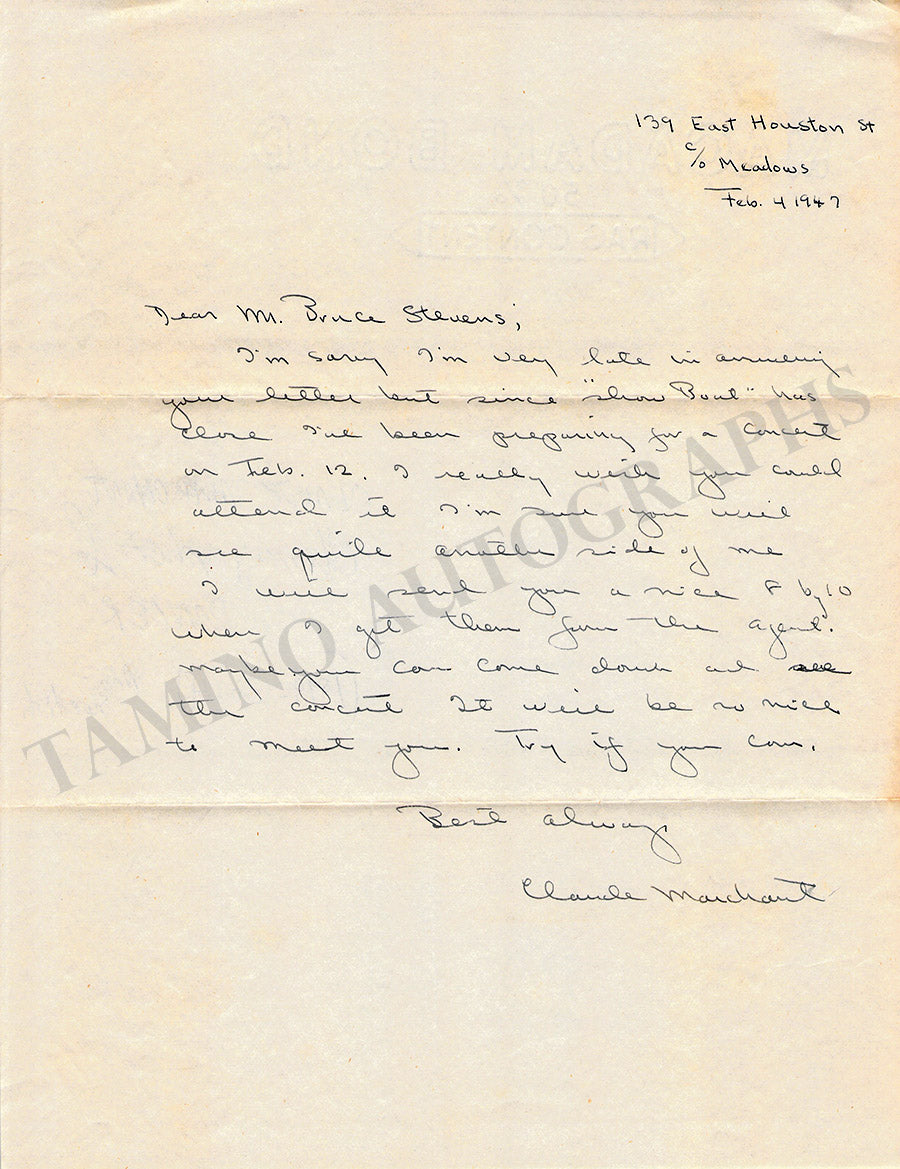 139 East Houston St
c/o Meadows
Feb. 4 1947
Dear Mr. Bruce Stevens;
I'm sorry I'm very late in answering
your letter but since "Show Boat" has
close I've been preparing for a concert
on Feb. 12. I really wish you could
attend it I'm sure you will
see quite another side of me
I will send you a nice 8 by 10
when I get them from the agent.
Maybe you can come down and see
the concert It will be so nice
to meet you. Try if you can.
Best always
Claude Marchant
TAMINO AUTOGRAPHS